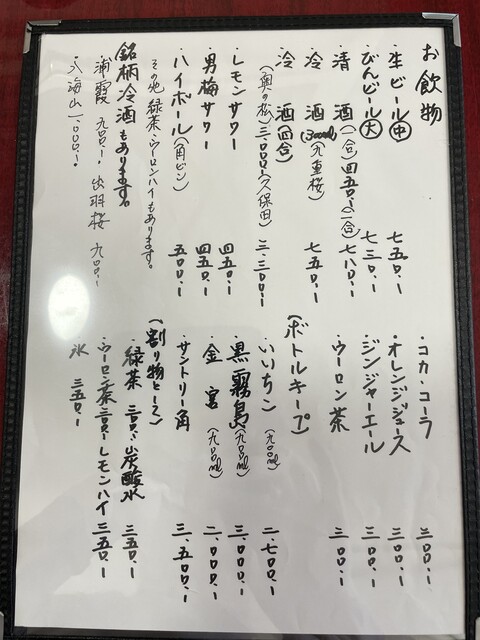 お飲物
・生ビール(中) 七五〇.ー
・びんビール(大) 七三〇.ー
・清酒(一合)四五〇.ー(二合)七八〇.ー
・冷酒(300ml)(九重桜) 七五〇.ー
・冷酒(四合)
(奥の松)三.〇〇〇.ー(久保田) 三.三〇〇.ー
・レモンサワー 四五〇.ー
・男梅サワー 四五〇.ー
・ハイボール(角ビン) 五〇〇.ー
その他緑茶・ウーロンハイもあります。
銘柄冷酒もあります。
・浦霞 九〇〇.ー 出羽桜 九〇〇.ー
・八海山 一.〇〇〇.ー
・コカ・コーラ 三〇〇.ー
・オレンジジュース 三〇〇.ー
・ジンジャーエール 三〇〇.ー
・ウーロン茶 三〇〇.ー
(ボトルキープ)
・いいちこ(九〇〇ml) 二.七〇〇.ー
・黒霧島(九〇〇ml) 三.〇〇〇.ー
・金宮(九〇〇ml) 二.〇〇〇.ー
・サントリー角 三.五〇〇.ー
(割り物として)
・緑茶 三〇〇.ー 炭酸水 三五〇.ー
・ウーロン茶 三〇〇.ー レモンハイ 三五〇.ー
氷 三五〇.ー